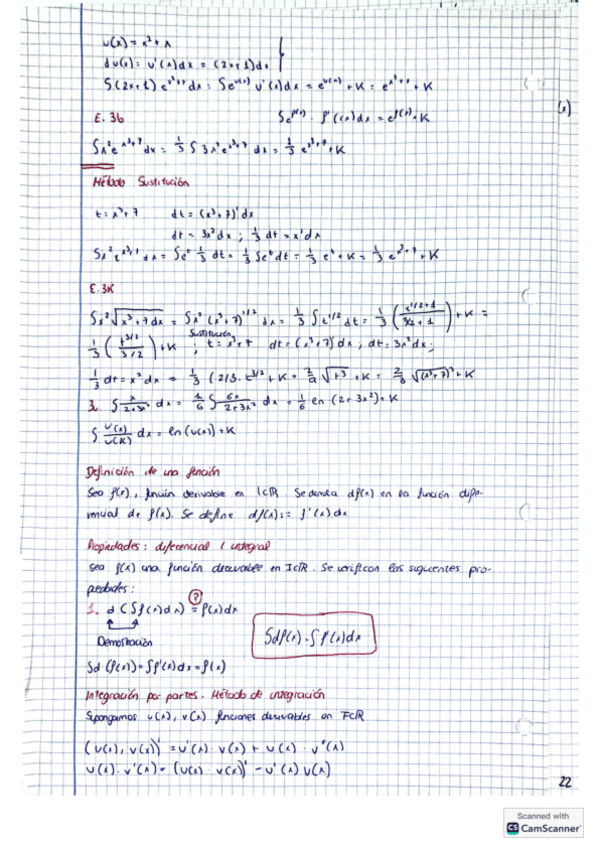 u(x) = x² + x
du(x) = u'(x)dx = (2x+1)dx
∫(2x+1) e^(x²+x) dx = ∫e^(u(x)) u'(x)dx = e^(u(x)) + K = e^(x²+x) + K
E. 3b
∫e^(f(x)) · f'(x)dx = e^(f(x)) + K
(x)
∫x² e^(x³+7) dx = 1/3 ∫3x² e^(x³+7) dx = 1/3 e^(x³+7) + K
Método Sustitución
t = x³+7 dt = (x³+7)' dx
dt = 3x² dx ; 1/3 dt = x² dx
∫x² e^(x³+7) dx = ∫e^t 1/3 dt = 1/3 ∫e^t dt = 1/3 e^t + K = 1/3 e^(x³+7) + K
E. 3K
∫x² √(x³+7 dx) = ∫x² (x³+7)^(1/2) dx = 1/3 ∫t^(1/2) dt = 1/3 ( / ) + K =
Sustitución
1/3 (t^(3/2) / 3/2) + K ; t = x³+7 dt = (x³+7)' dx ; dt = 3x² dx ;
1/3 dt = x² dx = 1/3 (2/3 · t^(3/2) + K = 2/9 √t³ + K = 2/9 √(x³+7)³ + K
3. ∫ x/(2+3x²) dx = 1/6 ∫ 6x/(2+3x²) dx = 1/6 ln (2+3x²) + K
∫ u'(x)/u(x) dx = ln (u(x)) + K
Definición de una función
Sea f(x), función derivable en I⊂ℝ. Se denota df(x) en la función dife-
rencial de f(x). Se define df(x) := f'(x) dx
Propiedades: diferencial e integral
Sea f(x) una función derivable en I⊂ℝ. Se verifican las siguientes pro-
piedades:
?
1. d (∫f(x)dx) = f(x)dx
∫df(x) = ∫f'(x)dx
Demostración
∫d (f(x)) = ∫f'(x)dx = f(x)
Integración por partes. Método de integración
Supongamos u(x), v(x) funciones derivables en F⊂ℝ
(u(x), v(x))' = u'(x) · v(x) + u(x) · v'(x)
u(x) · v'(x) = (u(x) · v(x))' - u'(x) v(x)
22
Scanned with
CS CamScanner